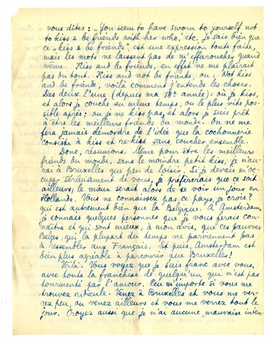 vous dites: "You seem to have sworn to yourself not
to kiss & be friends with her echo, etc. Je sais bien que
ce "kiss & be friends" est une expression toute faite,
mais les mots ne laissent pas de m'effaroucher quand
même. Kiss and be friends, en effet ne me plairait
pas du tout. Kiss and not be friends, ou: Not kiss
and be friends, voilà comment j'entends les choses.
Des deux l'un (depuis ma année): ou je kiss,
et alors je couche en même temps, ou le plus vite pos-
sible après; ou je ne kiss pas, et alors je suis prêt
à être les meilleurs friends du monde. On ne me
fera jamais démordre de l'idée que la cochonnerie
consiste à kiss et re-kiss sans coucher ensemble.
Donc, résumons. Même pour être les meilleurs
friends du monde, sans le moindre petit kiss, je n'au-
rai à Bruxelles que peu de loisir. Si je devais m'oc-
cuper sérieusement de vous, je préférerais que ce fût
ailleurs; le mieux serait alors de se voir un jour en
Hollande. Vous ne connaissez pas ce pays, je crois?
qui est autrement mieux que la Belgique. A Amsterdam
je connais quelques personnes que je vous ferais con-
naître et qui sont mieux, à mon avis, que ces pauvres
Belges, qui la plupart du temps ne parviennent pas
à ressembler aux Français. Et puis, Amsterdam est
bien plus agréable à parcourir que Bruxelles!
Voilà. Vous voyez que je suis franc avec vous,
avec toute la franchise de quelqu'un qui n'est pas
tourmenté par l'amour. Peu m'importe si vous me
trouvez ridicule. Venez à Bruxelles et vous me ver-
rez peu, ou venez ailleurs et vous me verrez tout le
jour. Croyez aussi que je n'ai aucune mauvaise inten-